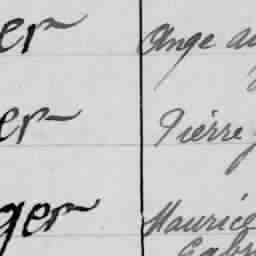 er Ange au
er Pierre
ger Maurice
Gabr